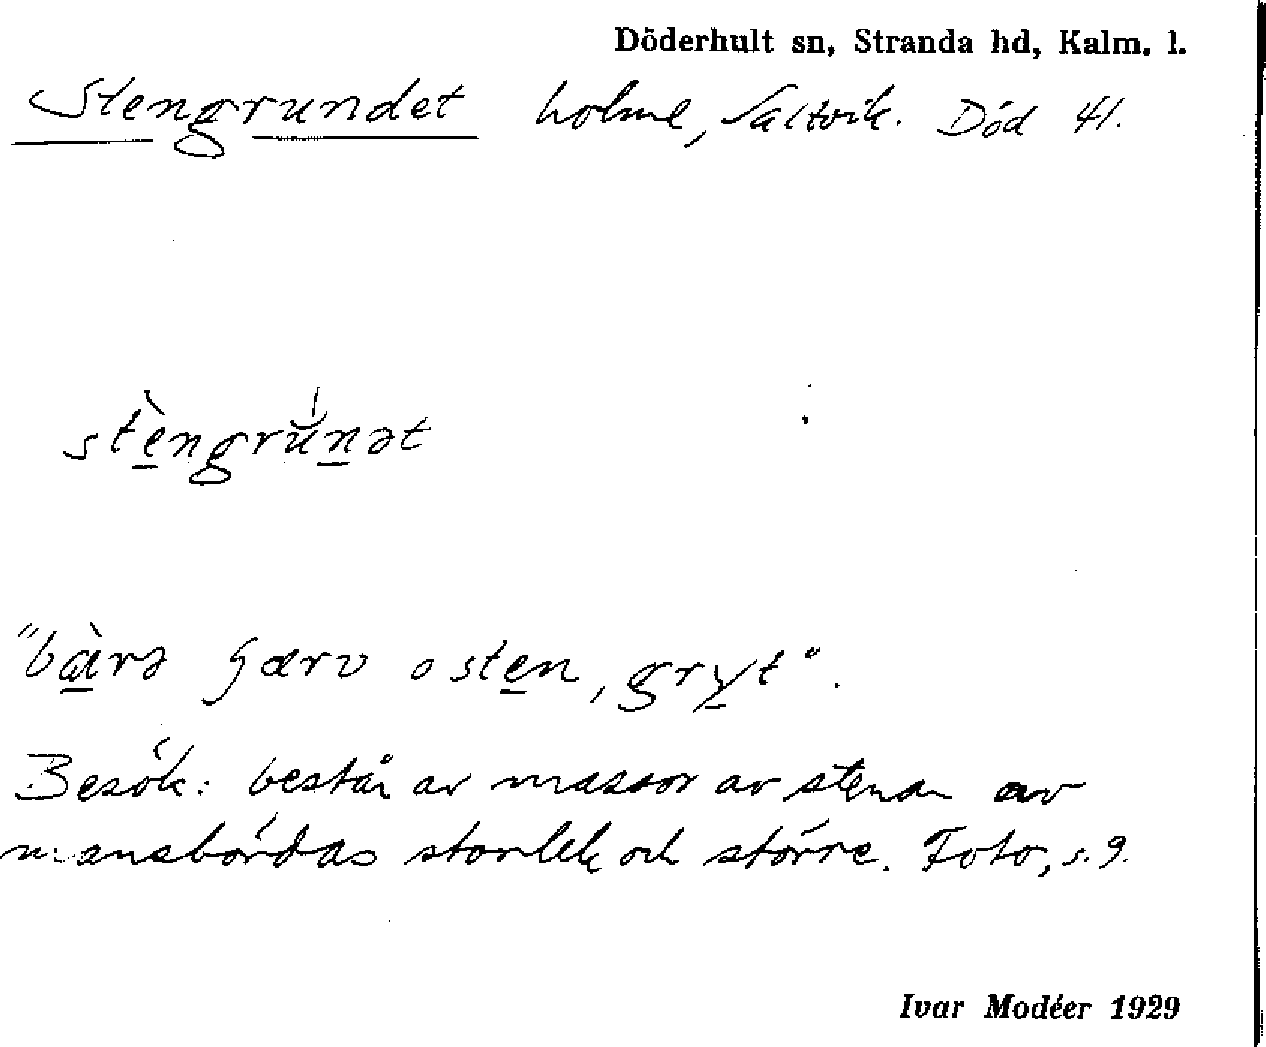 Döderhult sn, Stranda hd, Kalm. l.
Stengrundet holme, Saltvik. Död 41.
stèngrŭ́nət
"bàrə jærv o sten, gryt".
Besök: består av massor av stenar av
mansbördas storlek och större. Foto, s. 9.
Ivar Modéer 1929